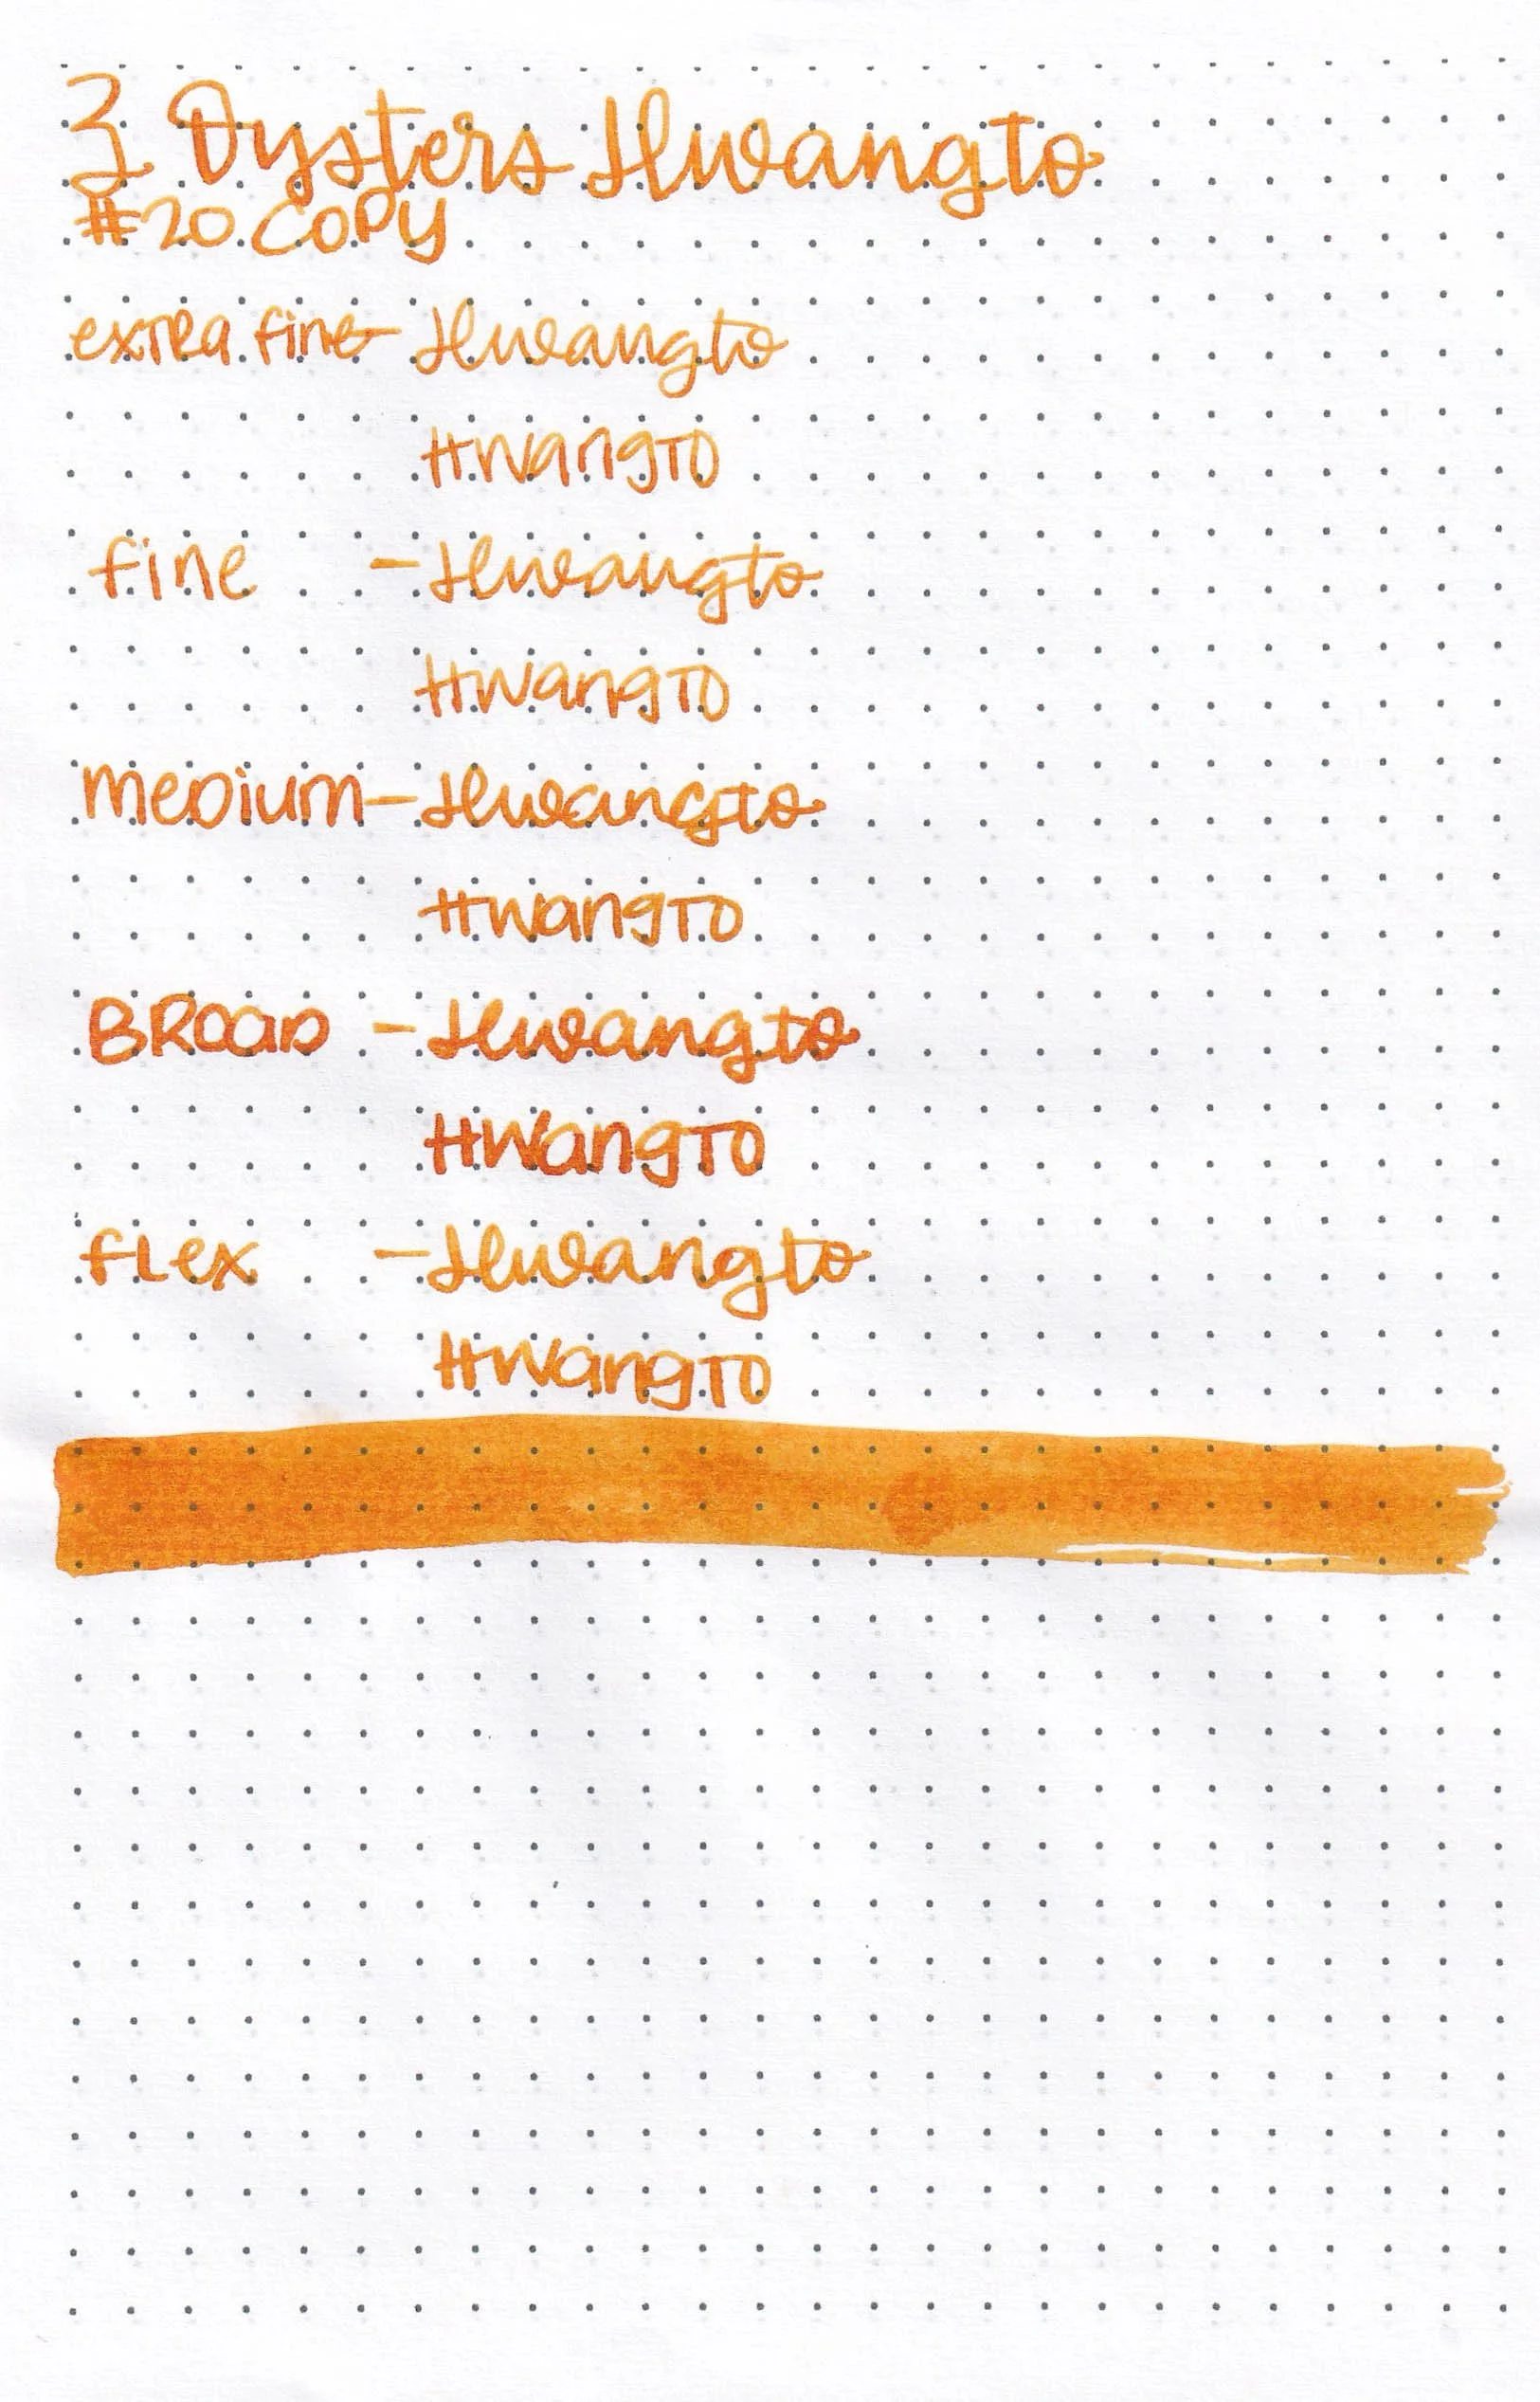 3 Oysters Hwangto
#20 COPY
extra fine - Hwangto
HwangTO
fine - Hwangto
HwangTO
medium - Hwangto
HwangTO
BROAD - Hwangto
HwangTO
fLex - Hwangto
HwangTO